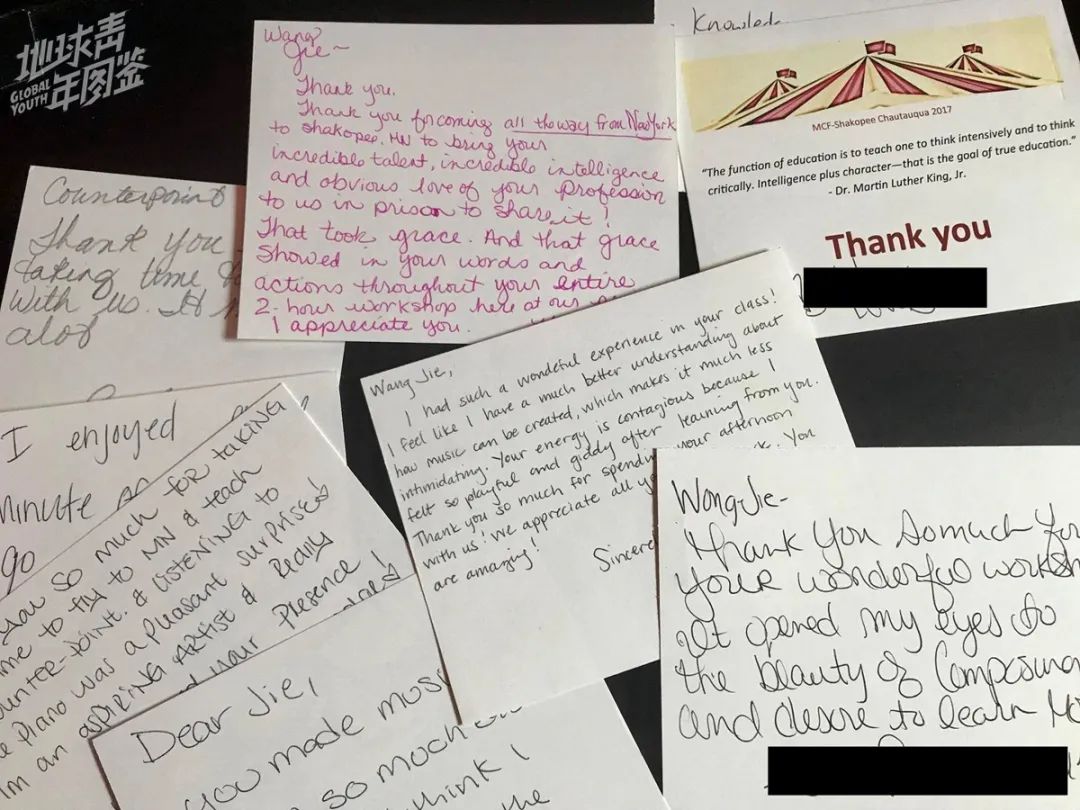 地球青
年图鉴
GLOBAL
YOUTH
Wang
Jie~
Thank you.
Thank you for coming all the way from New York
to Shakopee, MN to bring your
incredible talent, incredible intelligence
and obvious love of your profession
to us in prison to share it!
That took grace. And that grace
showed in your words and
actions throughout your entire
2-hour workshop here at our
I appreciate you.
MCF-Shakopee Chautauqua 2017
“The function of education is to teach one to think intensively and to think
critically. Intelligence plus character—that is the goal of true education.”
- Dr. Martin Luther King, Jr.
Thank you
Counterpoint
Thank you
taking time
with us. It
alot
Wang Jie,
I had such a wondeful experience in your class!
I feel like I have a much better understanding about
how music can be created, which makes it much less
intimidating. Your energy is contagious because I
felt so playful and giddy after learning from you.
Thank you so much for spending your afternoon
with us! We appreciate all You
are amazing!
I enjoyed
minute
go
you so much for taking
time to fly to MN & teach
Counter-point. & listening to
Piano was a pleasant surprise!
I'm an aspiring artist & really
your presence!
Wong Jie-
Thank you so much for
your wonderful
It opened my eyes to
the beauty of Composing
and desire to learn
Dear Jie,
you made
so much
think I
the